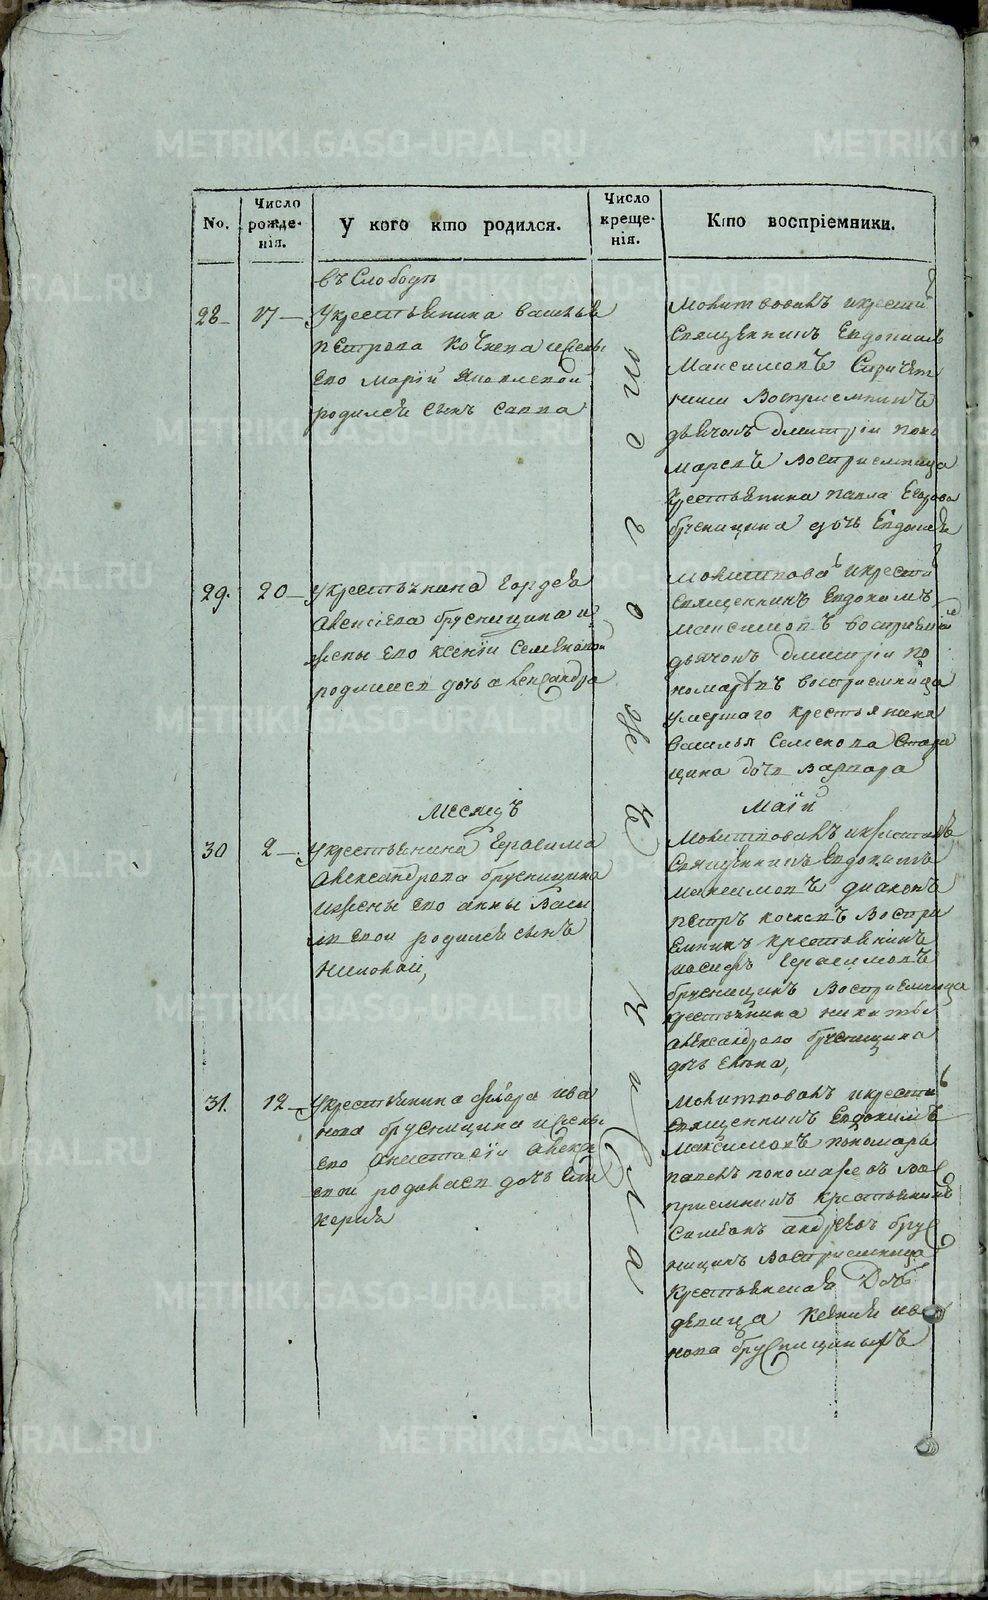 No.
Число рожде-нія.
У кого кто родился.
Число креще-нія.
Кто воспріемники.
въ Слободѣ
28
17
У крестьянина Василья
Петрова
его Маріи Яковлевой
родился сынъ Савва
Молитвовалъ и крести
Священникъ Евдокимъ
Максимовъ
Воспріемникъ
дьячокъ Дмитріи Поно
маревъ Воспріемница
крестьянина Павла Егорова
брусницина дочь
29.
20
У крестьянина Гордея
Алексіева брусницина и
жены его Ксеніи Семеновой
родилися дочь Александра
Молитвова и крести
Священникъ Евдокимъ
Максимовъ
дьячокъ Дмитріи По
номаревъ воспріемница
умершаго крестьянина
Василья Семенова Стари
цина дочь Варвара
Месяцъ
Маій
30
2
У крестьянина Герасима
Александрова брусницина
и жены его Анны Васи
левой родился сынъ
Николай,
Молитвовалъ и крестилъ
Священникъ Евдокимъ
Максимовъ диаконъ
Петръ
Воспри
емникъ крестьянинъ
иосифъ Герасимовъ
брусницинъ Воспріемница
крестьянина никиты
Александрова брусницина
дочь
31.
12
У крестьянина
Ива
нова брусницина и жены
его Анастасіи Алексі
евой родилася дочь Гли
керия
Молитвовалъ и крести
Священникъ Евдокимъ
Максимовъ пономарь
Павелъ Пономаревъ Вос
приемникъ крестьянинъ
Симеонъ Андреевъ брус
ницинъ Воспріемница
крестьянская Дочь
девица Ксения Ива
нова брусницыныхъ
того же числа
METRIKI.GASO-URAL.RU